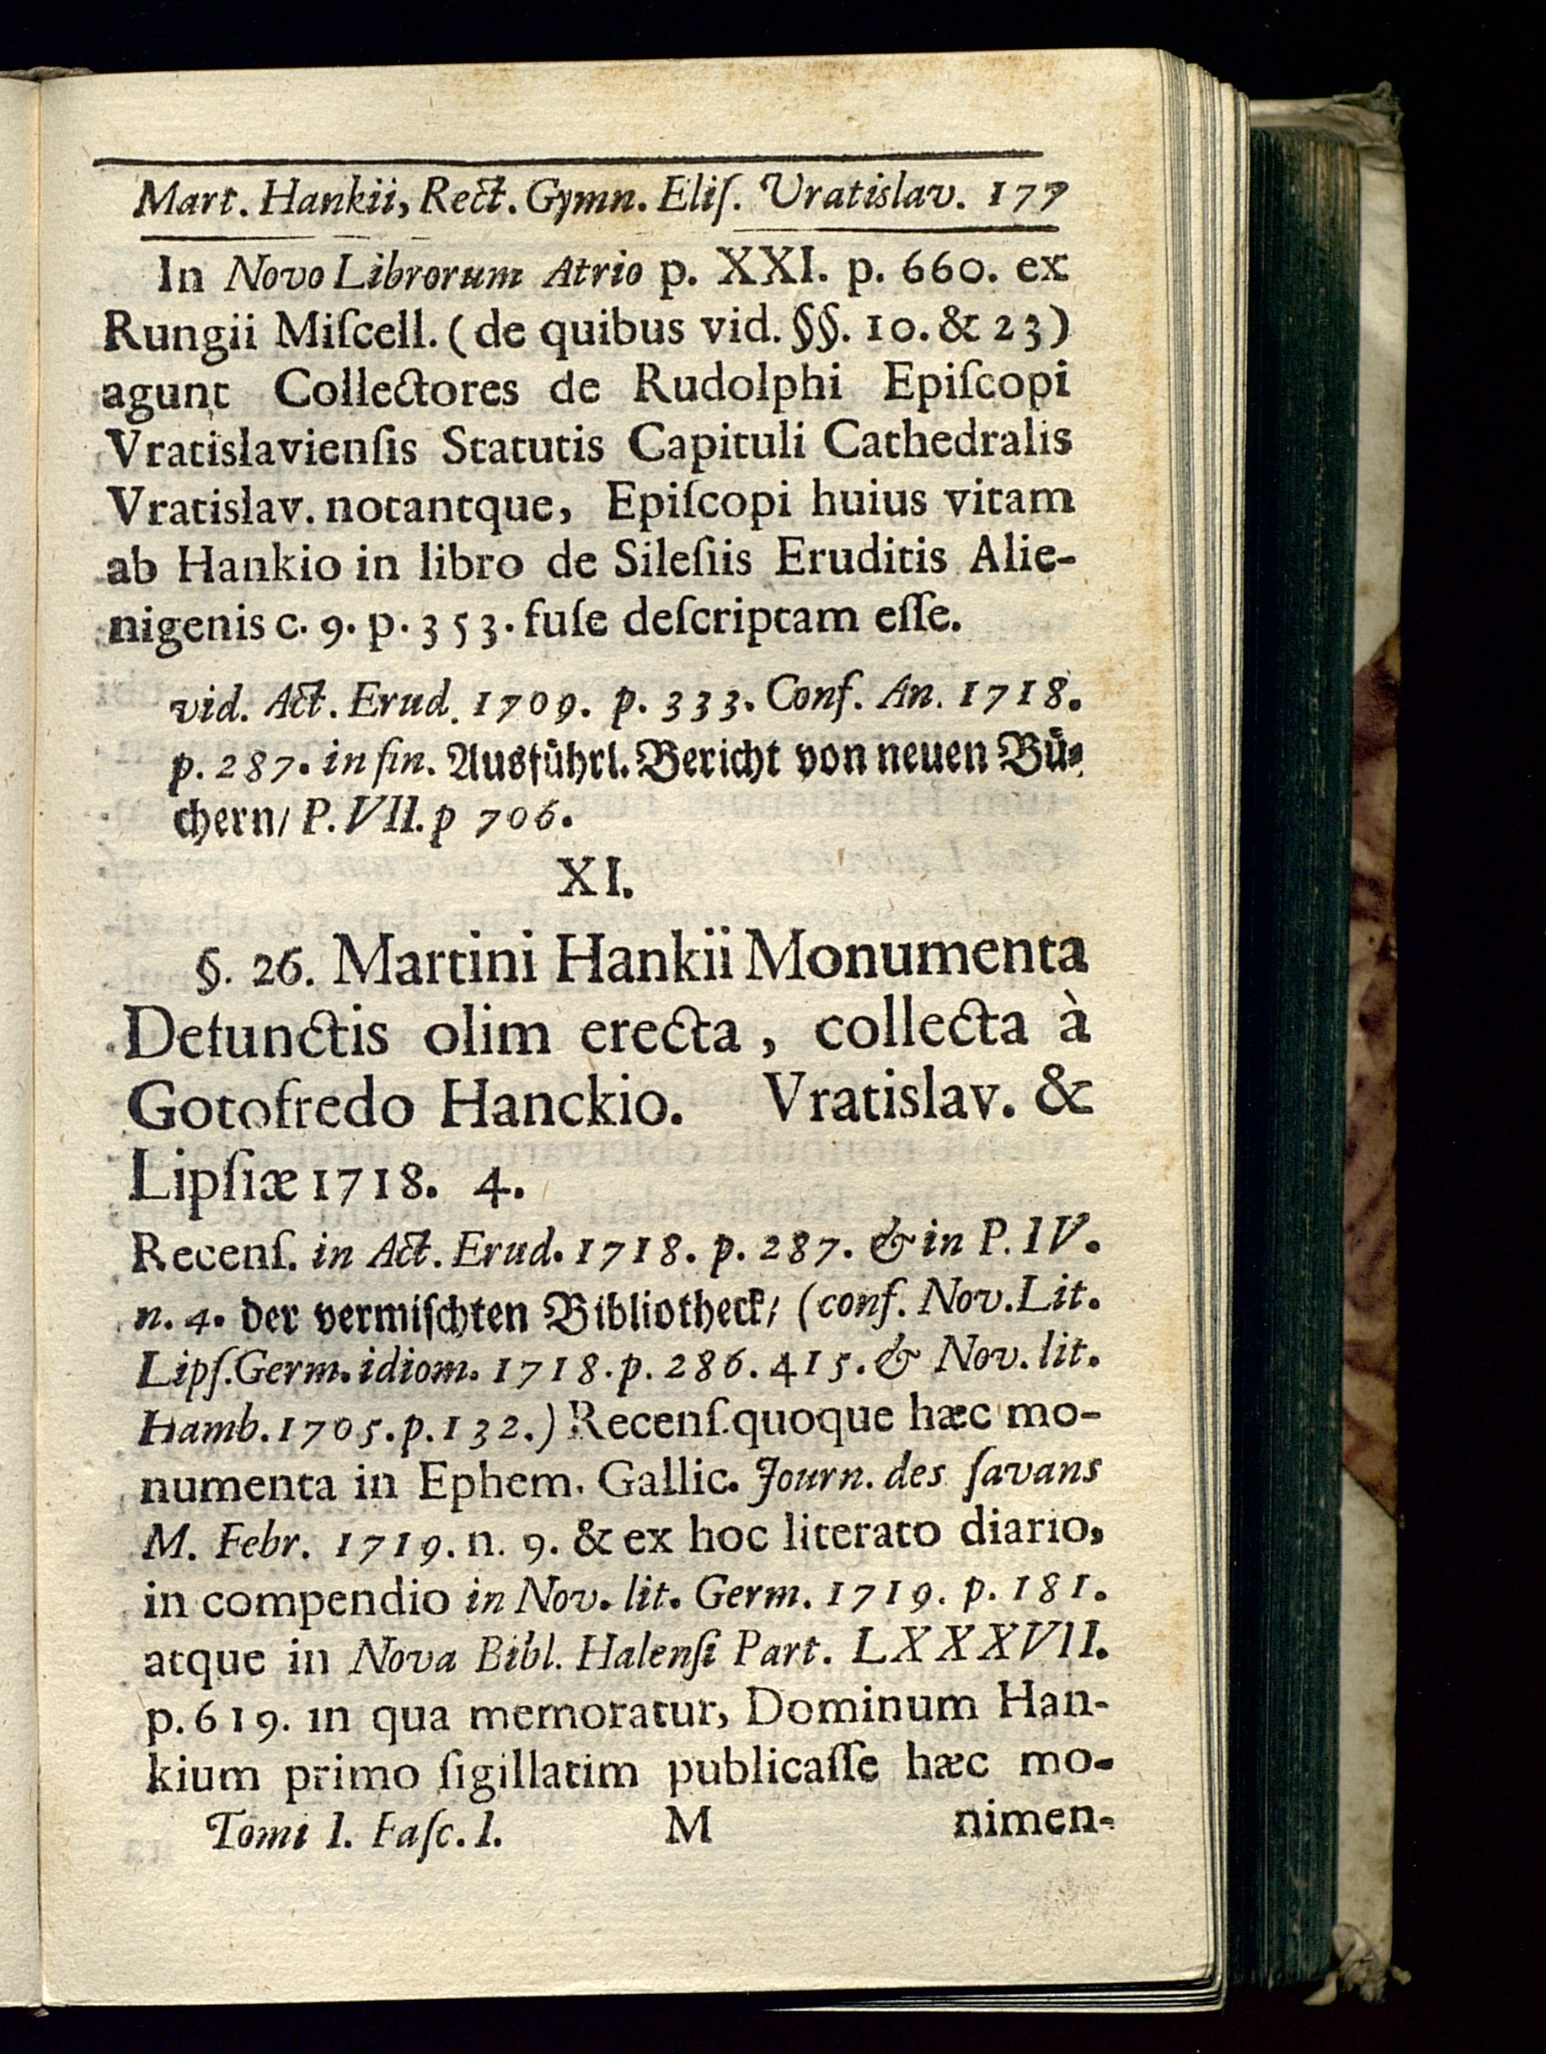 Mart. Hankii, Rect. Gymn. Eliſ. Vratislav. 177
In Novo Librorum Atrio p. XXI. p. 660. ex
Rungii Miſcell. (de quibus vid. §§. 10. & 23)
agunt Collectores de Rudolphi Epiſcopi
Vratislavienſis Statutis Capituli Cathedralis
Vratislav. notantque, Epiſcopi huius vitam
ab Hankio in libro de Sileſiis Eruditis Alie-
nigenis c. 9. p. 353. fuſe deſcriptam eſſe.
vid. Act. Erud. 1709. p. 333. Conf. An. 1718.
p. 287. in fin. Ausführl. Bericht von neuen Bü-
chern/ P. VII. p 706.
XI.
§. 26. Martini Hankii Monumenta
Defunctis olim erecta, collecta à
Gotofredo Hanckio. Vratislav. &
Lipſiæ 1718. 4.
Recenſ. in Act. Erud. 1718. p. 287. & in P. IV.
n. 4. der vermiſchten Bibliotheck/ (conf. Nov. Lit.
Lipſ. Germ. idiom. 1718. p. 286. 415. & Nov. lit.
Hamb. 1705. p. 132.) Recenſ. quoque hæc mo-
numenta in Ephem. Gallic. Journ. des ſavans
M. Febr. 1719. n. 9. & ex hoc literato diario,
in compendio in Nov. lit. Germ. 1719. p. 181.
atque in Nova Bibl. Halenſi Part. LXXXVII.
p. 619. in qua memoratur, Dominum Han-
kium primo ſigillatim publicaſſe hæc mo-
Tomi I. Faſc. I. M nimen-